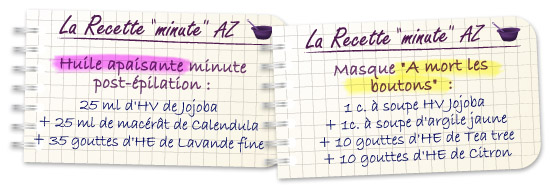 La Recette "minute" AZ
Huile apaisante minute
post-épilation :
25 ml d'HV de Jojoba
+ 25 ml de macérât de Calendula
+ 35 gouttes d'HE de Lavande fine
La Recette "minute" AZ
Masque "A mort les
boutons" :
1 c. à soupe HV Jojoba
+ 1c. à soupe d'argile jaune
+ 10 gouttes d'HE de Tea tree
+ 10 gouttes d'HE de Citron